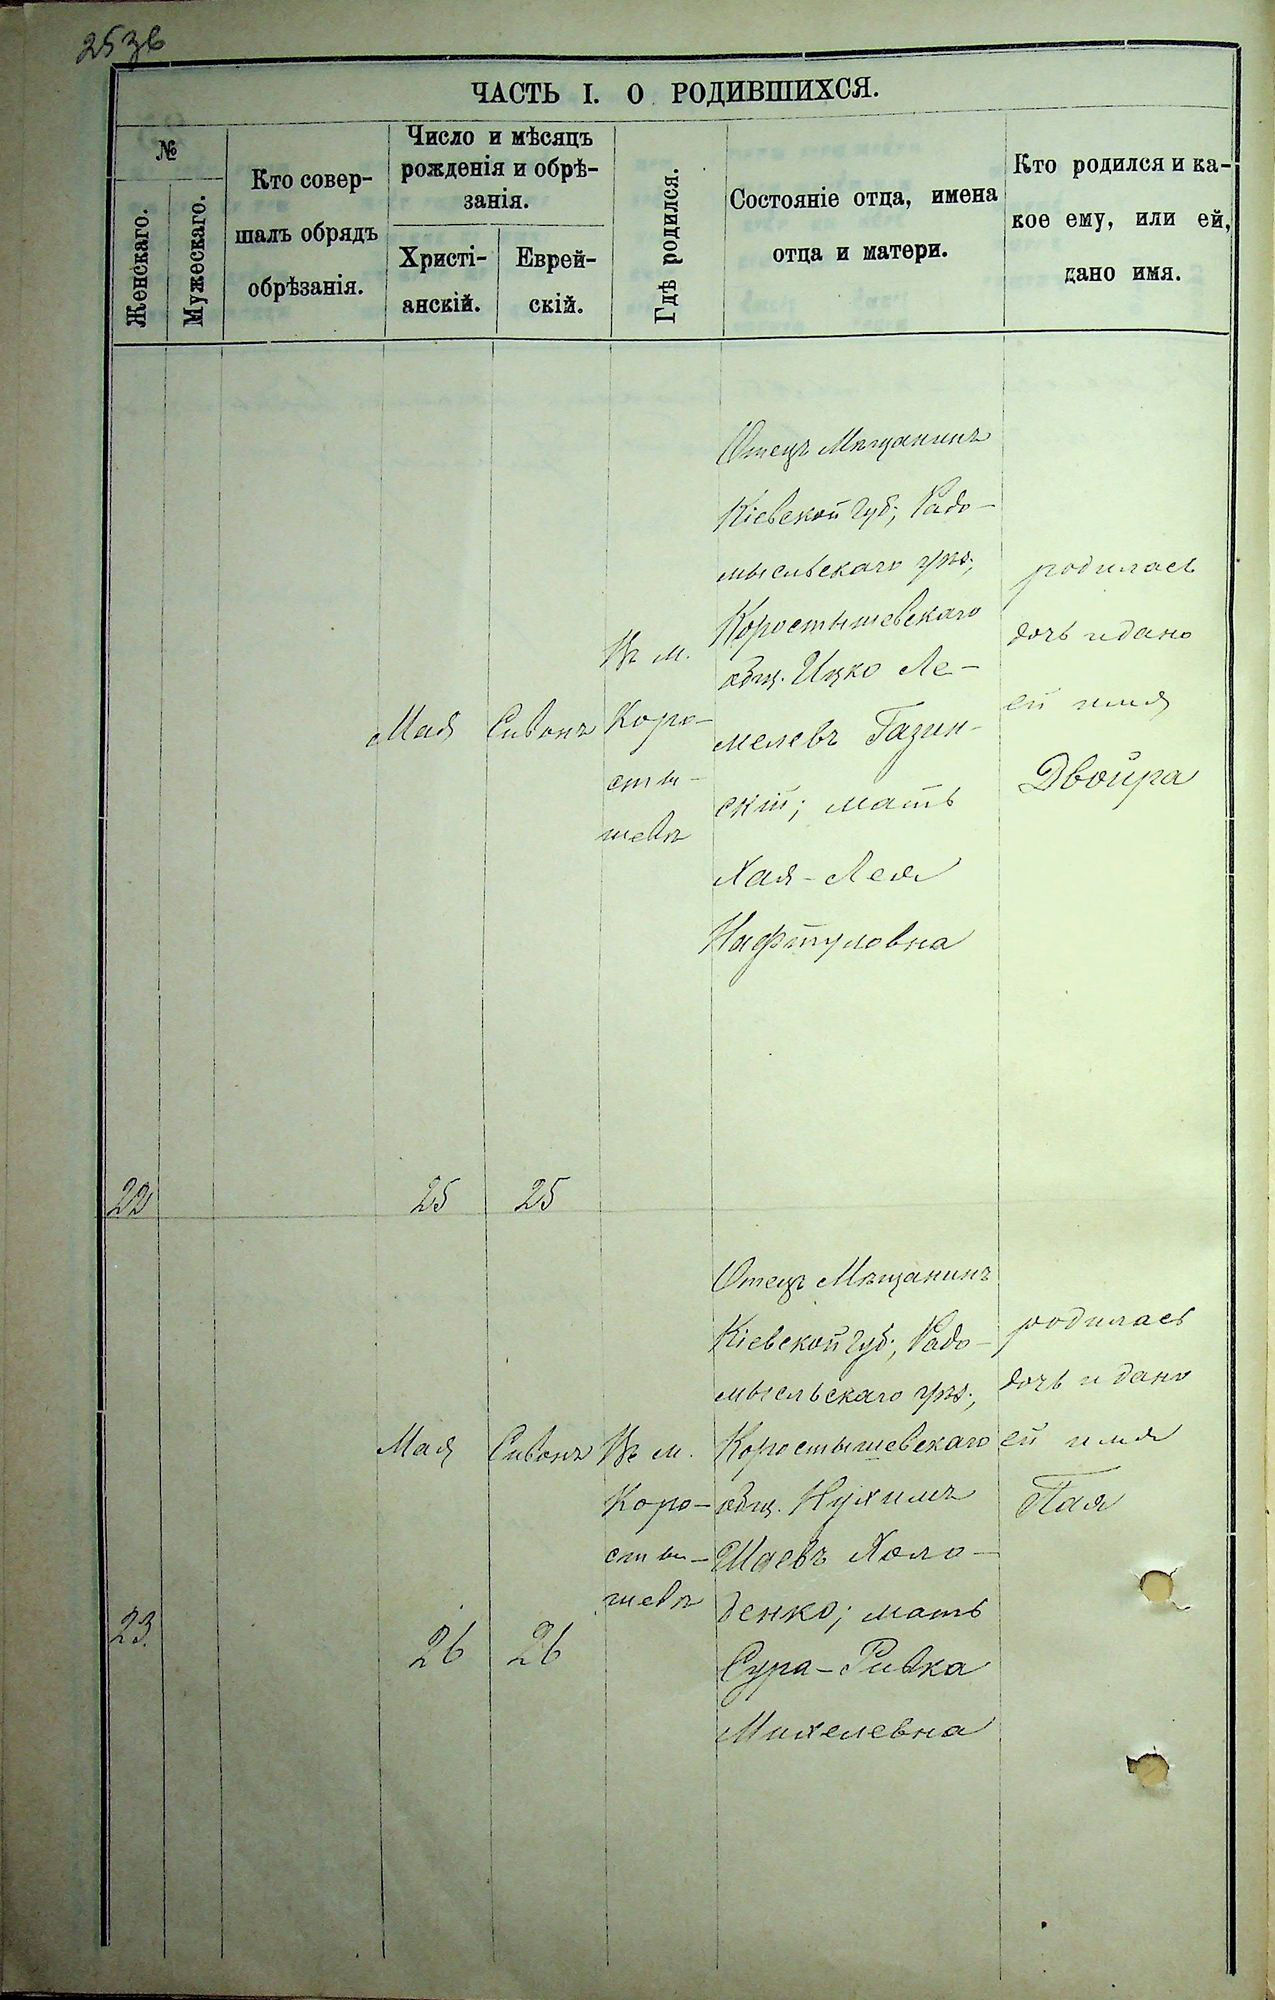 253б
ЧАСТЬ I. О РОДИВШИХСЯ.
№
Женскаго.
Мужескаго.
Кто совер-
шалъ обрядъ
обрѣзанія.
Число и мѣсяцъ
рожденія и обрѣ-
занія.
Христі-
анскій.
Еврей-
скій.
Гдѣ родился.
Состояніе отца, имена
отца и матери.
Кто родился и ка-
кое ему, или ей,
дано имя.
22
Мая
25
Сивонъ
25
Въ м.
Коро-
сты-
шевѣ
Отецъ Мѣщанинъ
Кіевской губ; Радо-
мысльскаго уѣз;
Коростышевскаго
общ. Ицко Ле-
мелевъ Газин-
скій; мать
Хая-Лея
Нафтуловна
родилась
дочь и дано
ей имя
Двойра
23
Мая
26
Сивонъ
26
Въ м.
Коро-
сты-
шевѣ
Отецъ Мѣщанинъ
Кіевской губ; Радо-
мысльскаго уѣз;
Коростышевскаго
общ. Нухимъ
Шаевъ Холо-
денко; мать
Сура-Ривка
Михелевна
родилась
дочь и дано
ей имя
Пая